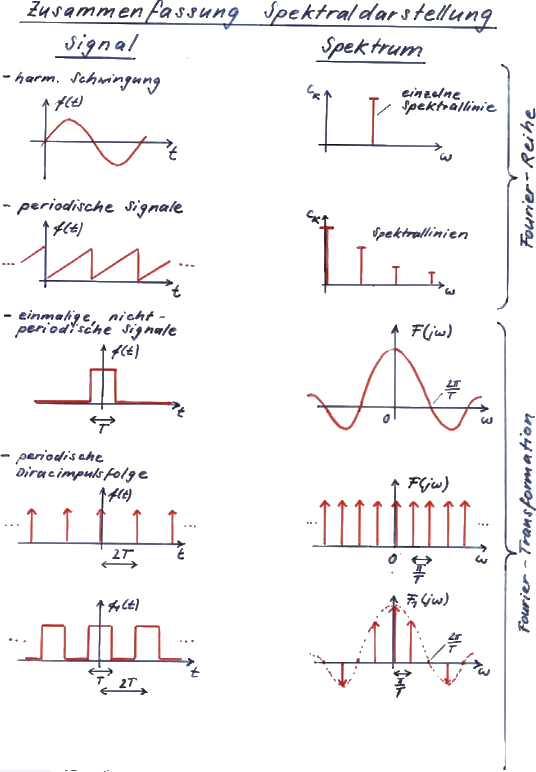 Zusammenfassung Spektraldarstellung
Signal
Spektrum
- harm. Schwingung
f(t)
t
c_k
einzelne
Spektrallinie
ω
- periodische Signale
f(t)
...
...
t
c_k
Spektrallinien
ω
Fourier-Reihe
- einmalige, nicht-
periodische Signale
f(t)
T
t
F(jω)
2π/T
0
ω
- periodische
Diracimpulsfolge
f(t)
...
...
2T
t
F(jω)
...
...
0
π/T
ω
f₁(t)
...
...
T
2T
t
F₁(jω)
2π/T
π/T
ω
Fourier-Transformation